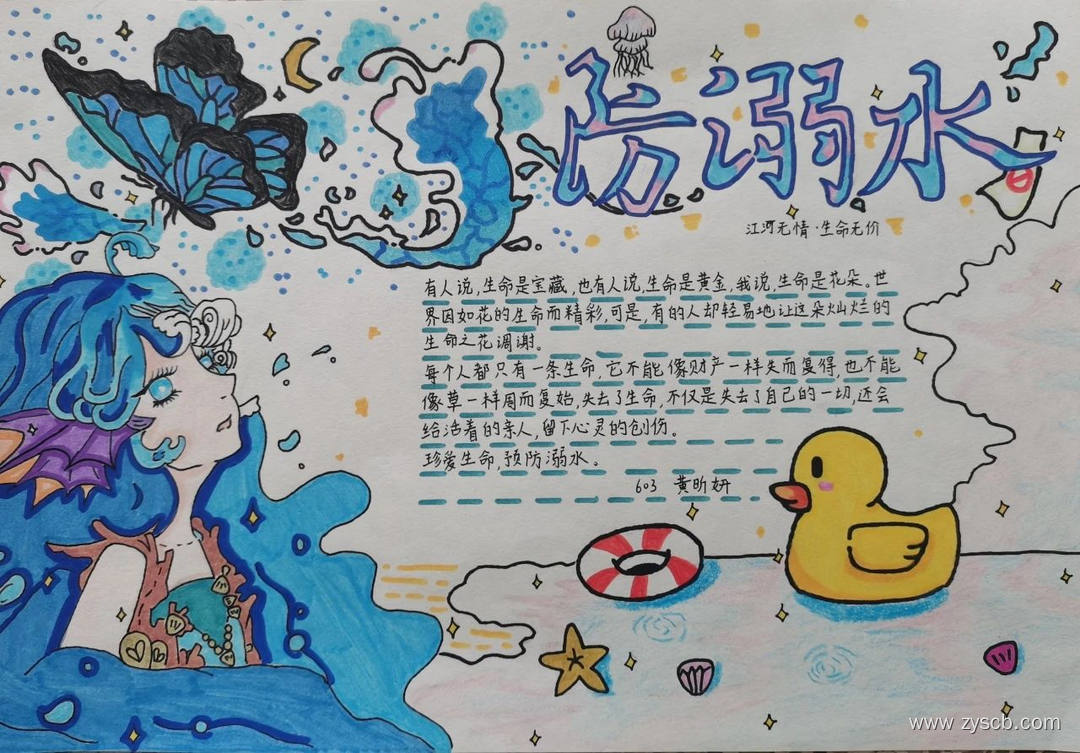 防溺水
江河无情·生命无价
有人说,生命是宝藏,也有人说,生命是黄金,我说,生命是花朵。世
界因如花的生命而精彩,可是,有的人却轻易地让这朵灿烂的
生命之花凋谢。
每个人都只有一条生命,它不能像财产一样失而复得,也不能
像草一样周而复始,失去了生命,不仅是失去了自己的一切,还会
给活着的亲人,留下心灵的创伤。
珍爱生命,预防溺水。
603 黄昕妍
www.zyscb.com